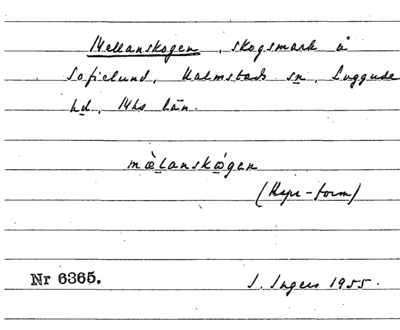 Mellanskogen, skogsmark å
Sofielund, Kalmstads sn, Luggude
hd, Mhs län.
mæ̀lanskȯ́gen
(Hspr-form)
Nr 6365. I. Ingers 1955.